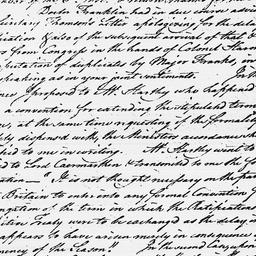 Doctor Franklin had in due course advised
Secretary Thomson's Letter apologizing for the delay
ification & also of the subsequent arrival of that
from Congress in the hands of Colonel Harmar
of duplicates by Major Franks, in
speaking as in your joint sentiments. In th
I proposed to Mr. Hartley who happened
a convention for extending the stipulated term
at the same time requesting if the formality
dispensed with, the Ministers accordance wh
to me in writing. Mr. Hartley went to
to Lord Caermarthen & transmitted to me the fo
ation — "It is not thought necessary on the par
Britain to enter into any formal Convention f
ongation of the term in which the Ratification
itive Treaty were to be exchanged as the delay in
appears to have arisen merely in consequence
mency of the Season" In the second cas upon